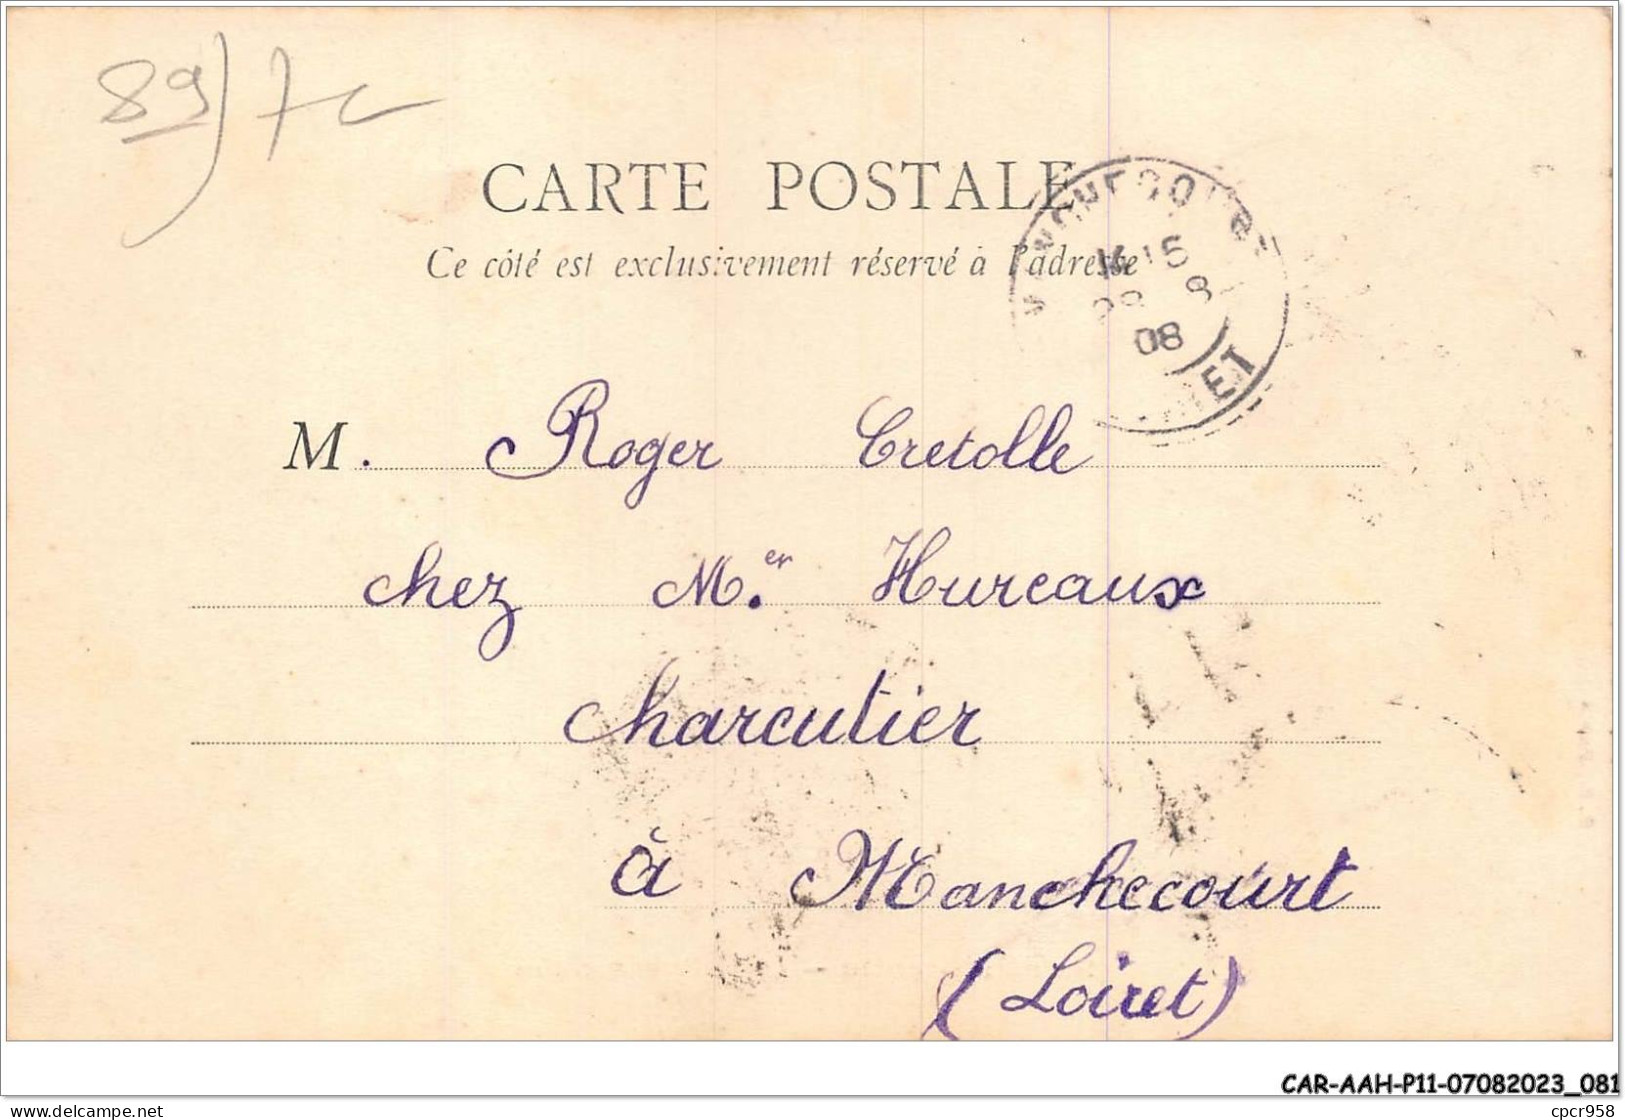 89) 7c
CARTE POSTALE
Ce côté est exclusivement réservé à l'adresse
15
08
ET
M. Roger Cretolle
chez M.er Hureaux
Charcutier
à Manchecourt
(Loiret)
CAR-AAH-P11-07082023_081
delcampe.net
cpcr958